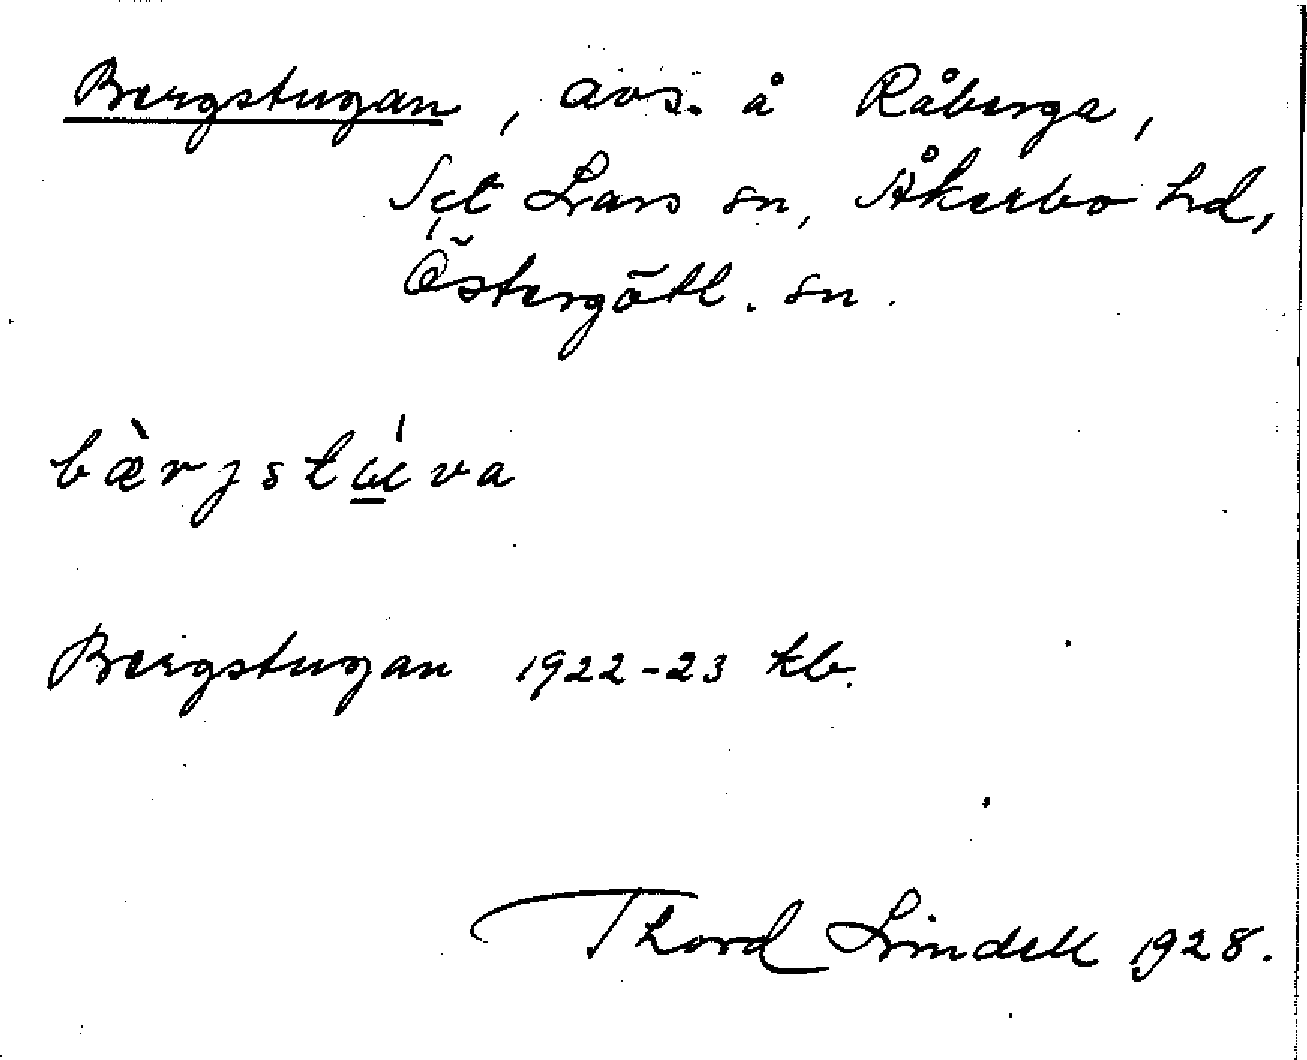 Bergstugan, avs. å Råberga,
Sct Lars sn, Åkerbo hd,
Östergötl. sn.
bæ̀rjstú̲va
Bergstugan 1922-23 kb.
Thord Lindell 1928.